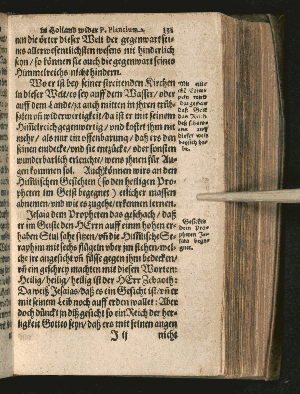 in Holland wider P. Plancium. 131
nn die örter dieser Welt der gegenwart sei-
nes allerwesentlichsten wesens nit hinderlich
seyn / so können sie auch die gegenwart seines
Himmelreichs nicht hindern.
Wo er ist bey seiner streitenden Kirchen
in dieser Welt / es sey auff dem Wasser / oder
auff dem Lande / ja auch mitten in ihren trüb-
salen vñ widerwertigkeit / da ist er mit seinem
Himelreich gegenwertig / und
nicht / als nur ein offenbarung / daß ers den
seinen endecke / und sie entzücke / oder sonsten
wunderbarlich erleuchte / wens ihnen für Au-
gen kommen sol. Auch können wirs an den
Himlischen Gesichten (so den heiligen Pro-
pheten im Geist begegnet) etlicher massen
abnemen / und wie es zugehe / erkennen lernen.
Jesaia dem Propheten das geschach / daß
er im Geiste den HErrn auff einem hohen er-
haben Stul sahe sitzen / vñ die Himlische Se-
raphim mit sechs flügeln uber jm stehen / wel-
che jre angesicht vñ füsse gegen ihm bedecken /
vñ ein geschrey machten mit diesen Worten:
Heilig / heilig / heilig ist der HErr Zebaoth:
Da weiß Jesaias / daß es ein Gesicht ist / vñ er
mit seinem Leib noch auff erden wallet: Aber
doch dünckt jn diß gesicht so ein Reich der her-
ligkeit Gottes seyn / daß ers mit seinen augen
J ij nicht
Gesichte
dem Pro-
pheten Je-
saia begeg-
net.